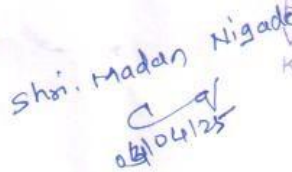 Shri. Madan Nigade
04/04/25